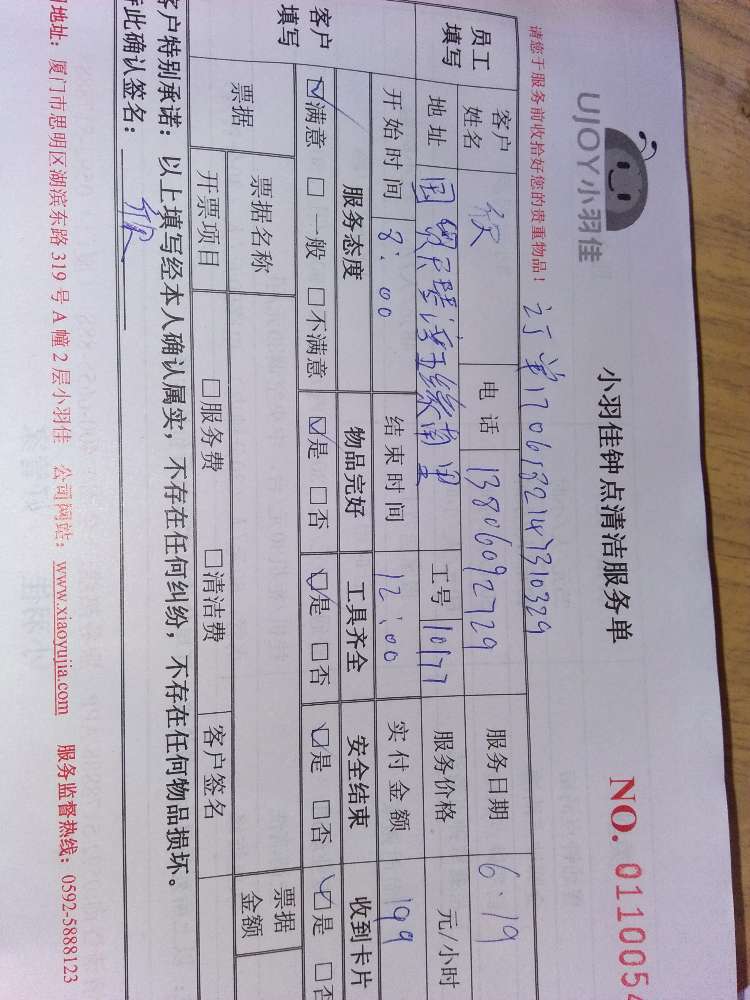 UJOY小羽佳
小羽佳钟点清洁服务单
NO. 0110054
请您于服务前收拾好您的贵重物品！
员工填写 客户姓名 电话 13806092729 服务日期 6.19
地址 国贸 工号 10177 服务价格 元/小时
开始时间 8:00 结束时间 12:00 实付金额 199
客户填写 服务态度 物品完好 工具齐全 安全结束 收到卡片
☑满意 □一般 □不满意 ☑是 □否 ☑是 □否 ☑是 □否 ☑是 □否
票据 票据名称 票据金额
开票项目 □服务费 □清洁费 客户签名
客户特别承诺：以上填写经本人确认属实，不存在任何纠纷，不存在任何物品损坏。
此确认签名：
地址：厦门市思明区湖滨东路319号A幢2层小羽佳 公司网站：www.xiaoyujia.com 服务监督热线：0592-5888123